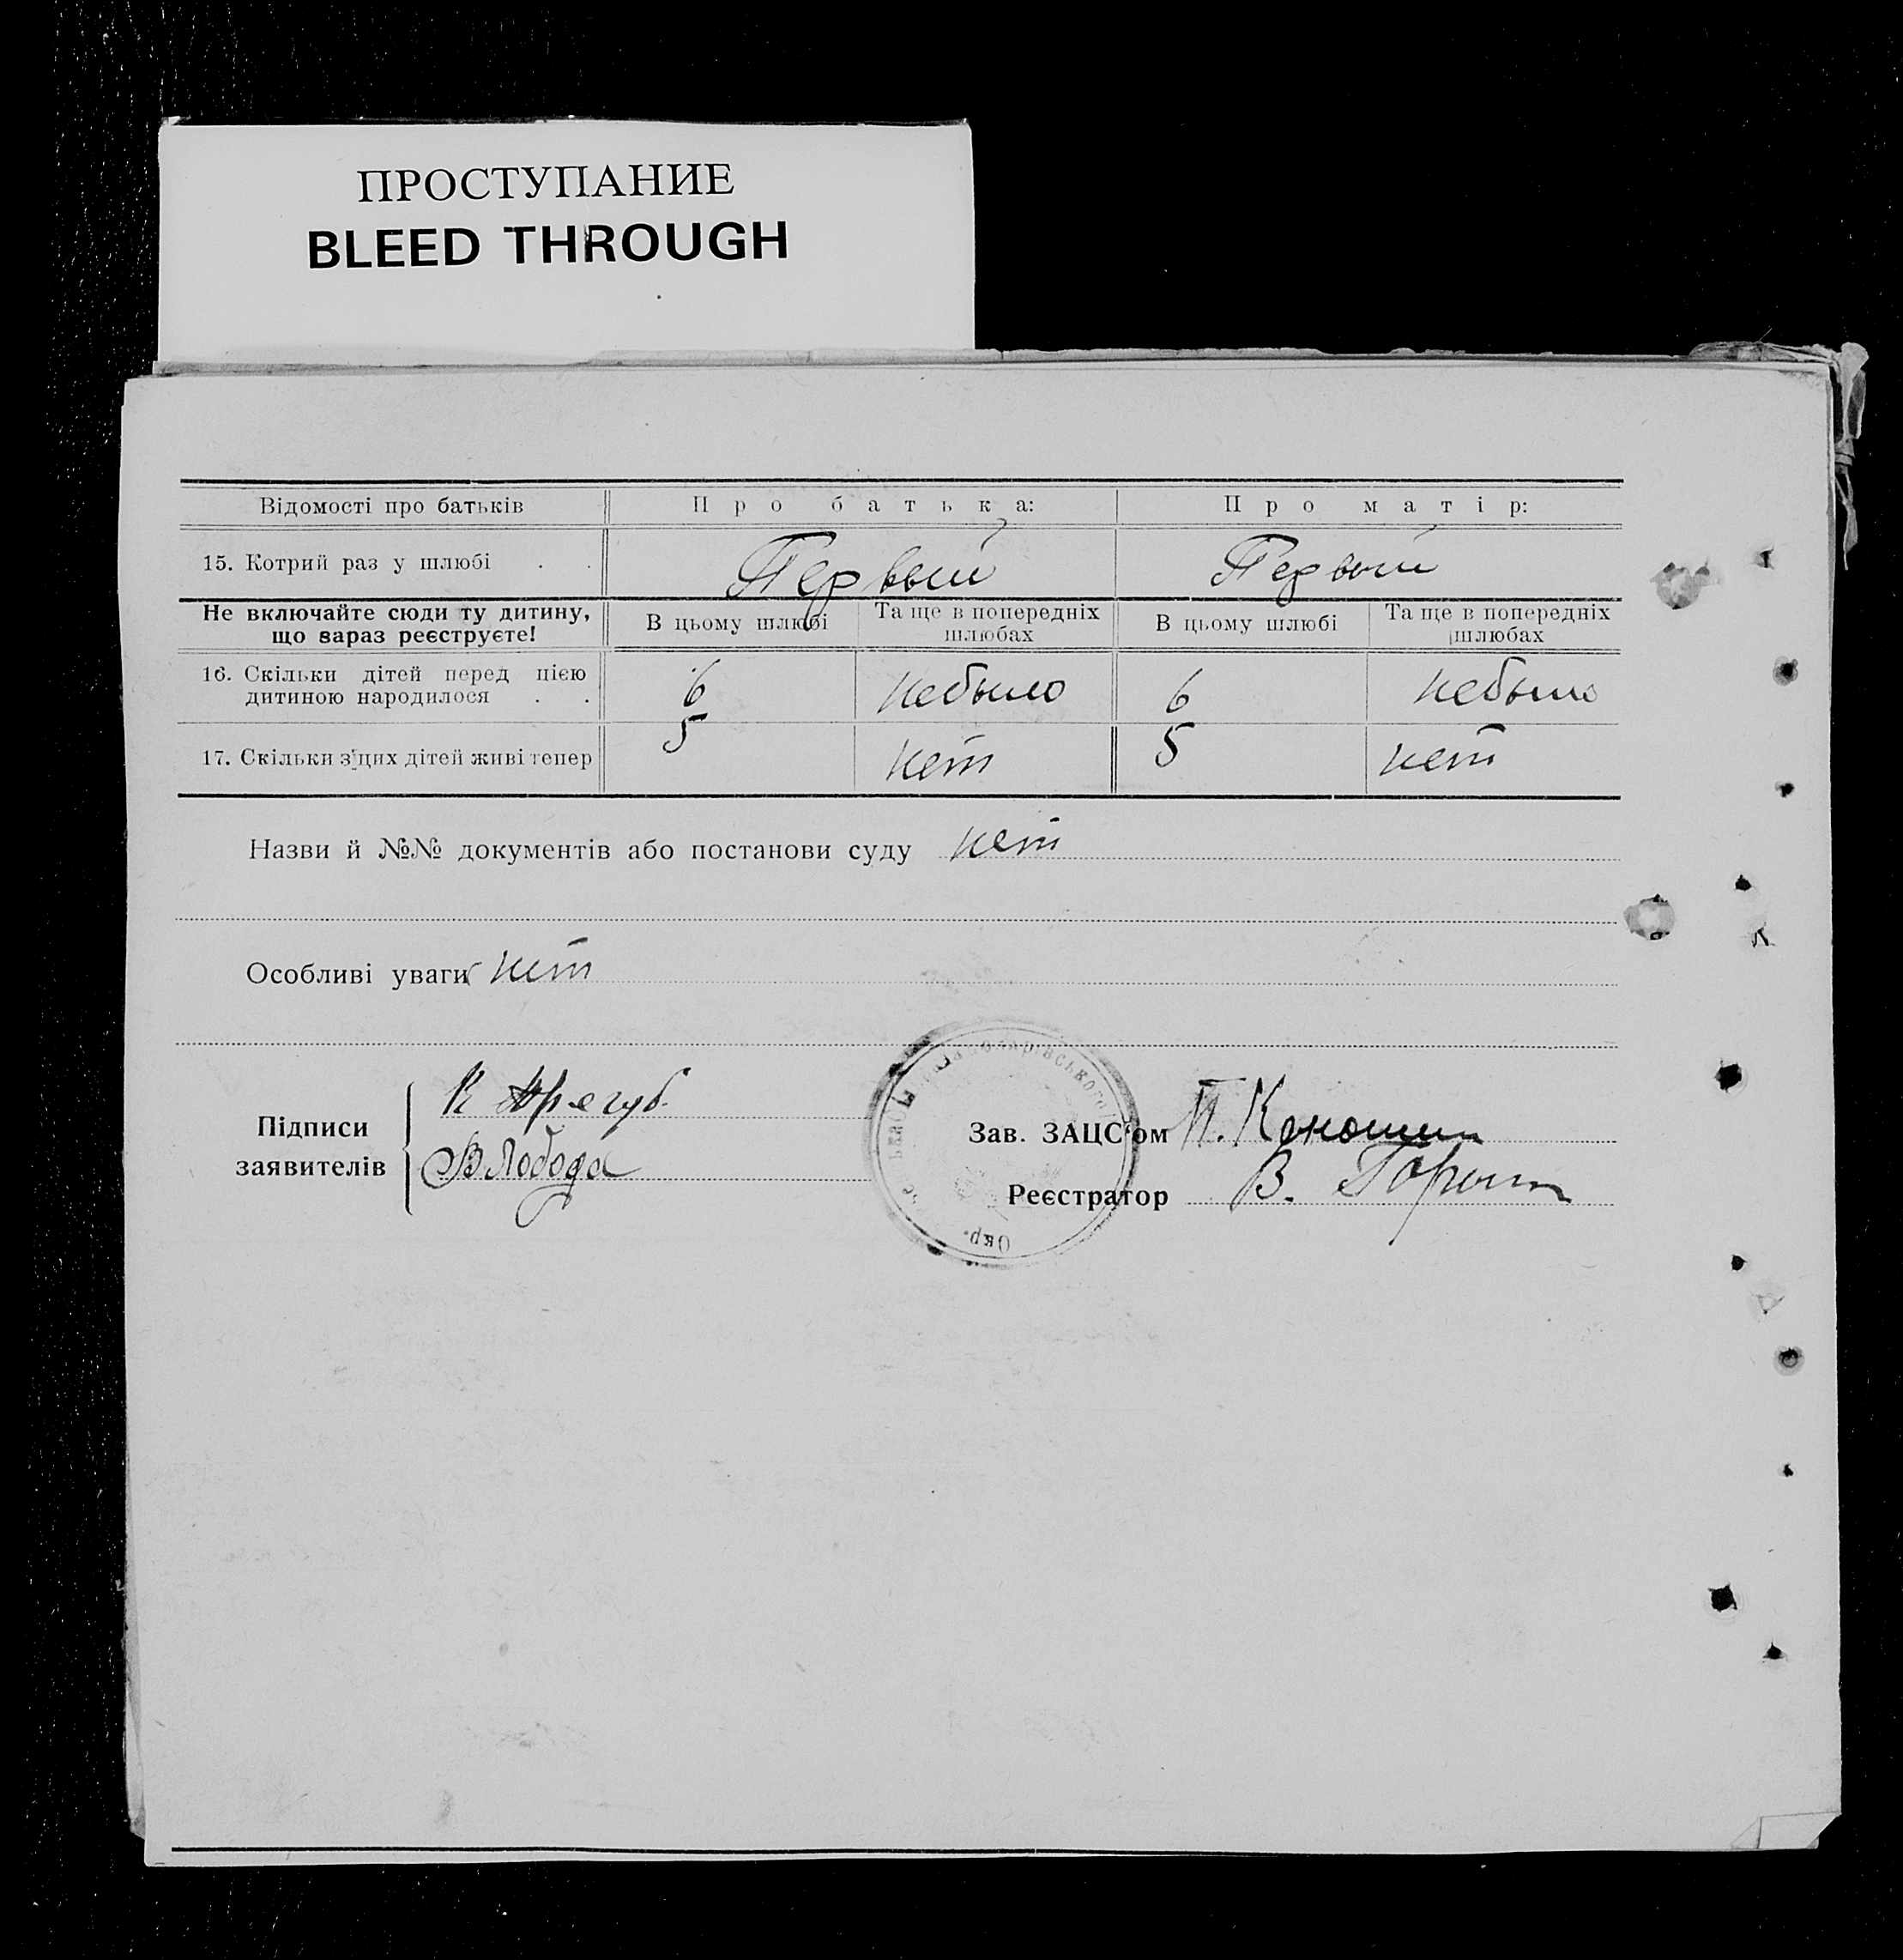 ПРОСТУПАНИЕ
BLEED THROUGH
Відомості про батьків Про батька: Про матір:
15. Котрий раз у шлюбі . . Первый Первый
Не включайте сюди ту дитину, що вараз реєструєте! В цьому шлюбі Та ще в попередніх шлюбах В цьому шлюбі Та ще в попередніх шлюбах
16. Скільки дітей перед цією дитиною народилося . . 6 небыло 6 небыло
17. Скільки з'цих дітей живі тепер 5 нет 5 нет
Назви й №№ документів або постанови суду нет
Особливі уваги нет
Підписи заявителів
В Лобода
Зав. ЗАЦС‘ом П.
Реєстратор В.
Окр.